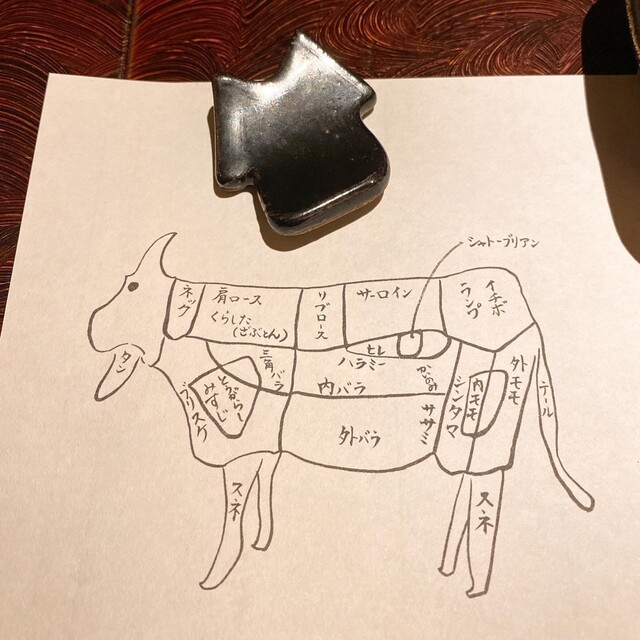 シャトーブリアン
ネック
肩ロース
くらした
(ざぶとん)
リブロース
サーロイン
イチボ
ランプ
タン
三角バラ
ヒレ
ハラミ
内バラ
かいのみ
ブリスケ
とうがらし
みすじ
外バラ
ササミ
シンタマ
内モモ
外モモ
テール
スネ
スネ